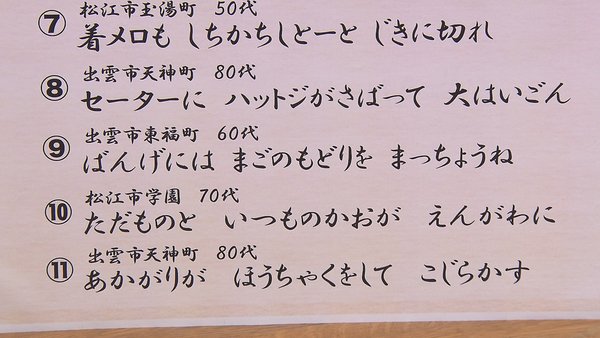 ⑦ 松江市玉湯町 50代
着メロも しちかちしとーと じきに切れ
⑧ 出雲市天神町 80代
セーターに ハットジがさばって 大はいごん
⑨ 出雲市東福町 60代
ばんげには まごのもどりを まっちょうね
⑩ 松江市学園 70代
ただものと いつものかおが えんがわに
⑪ 出雲市天神町 80代
あかがりが ほうちゃくをして こじらかす